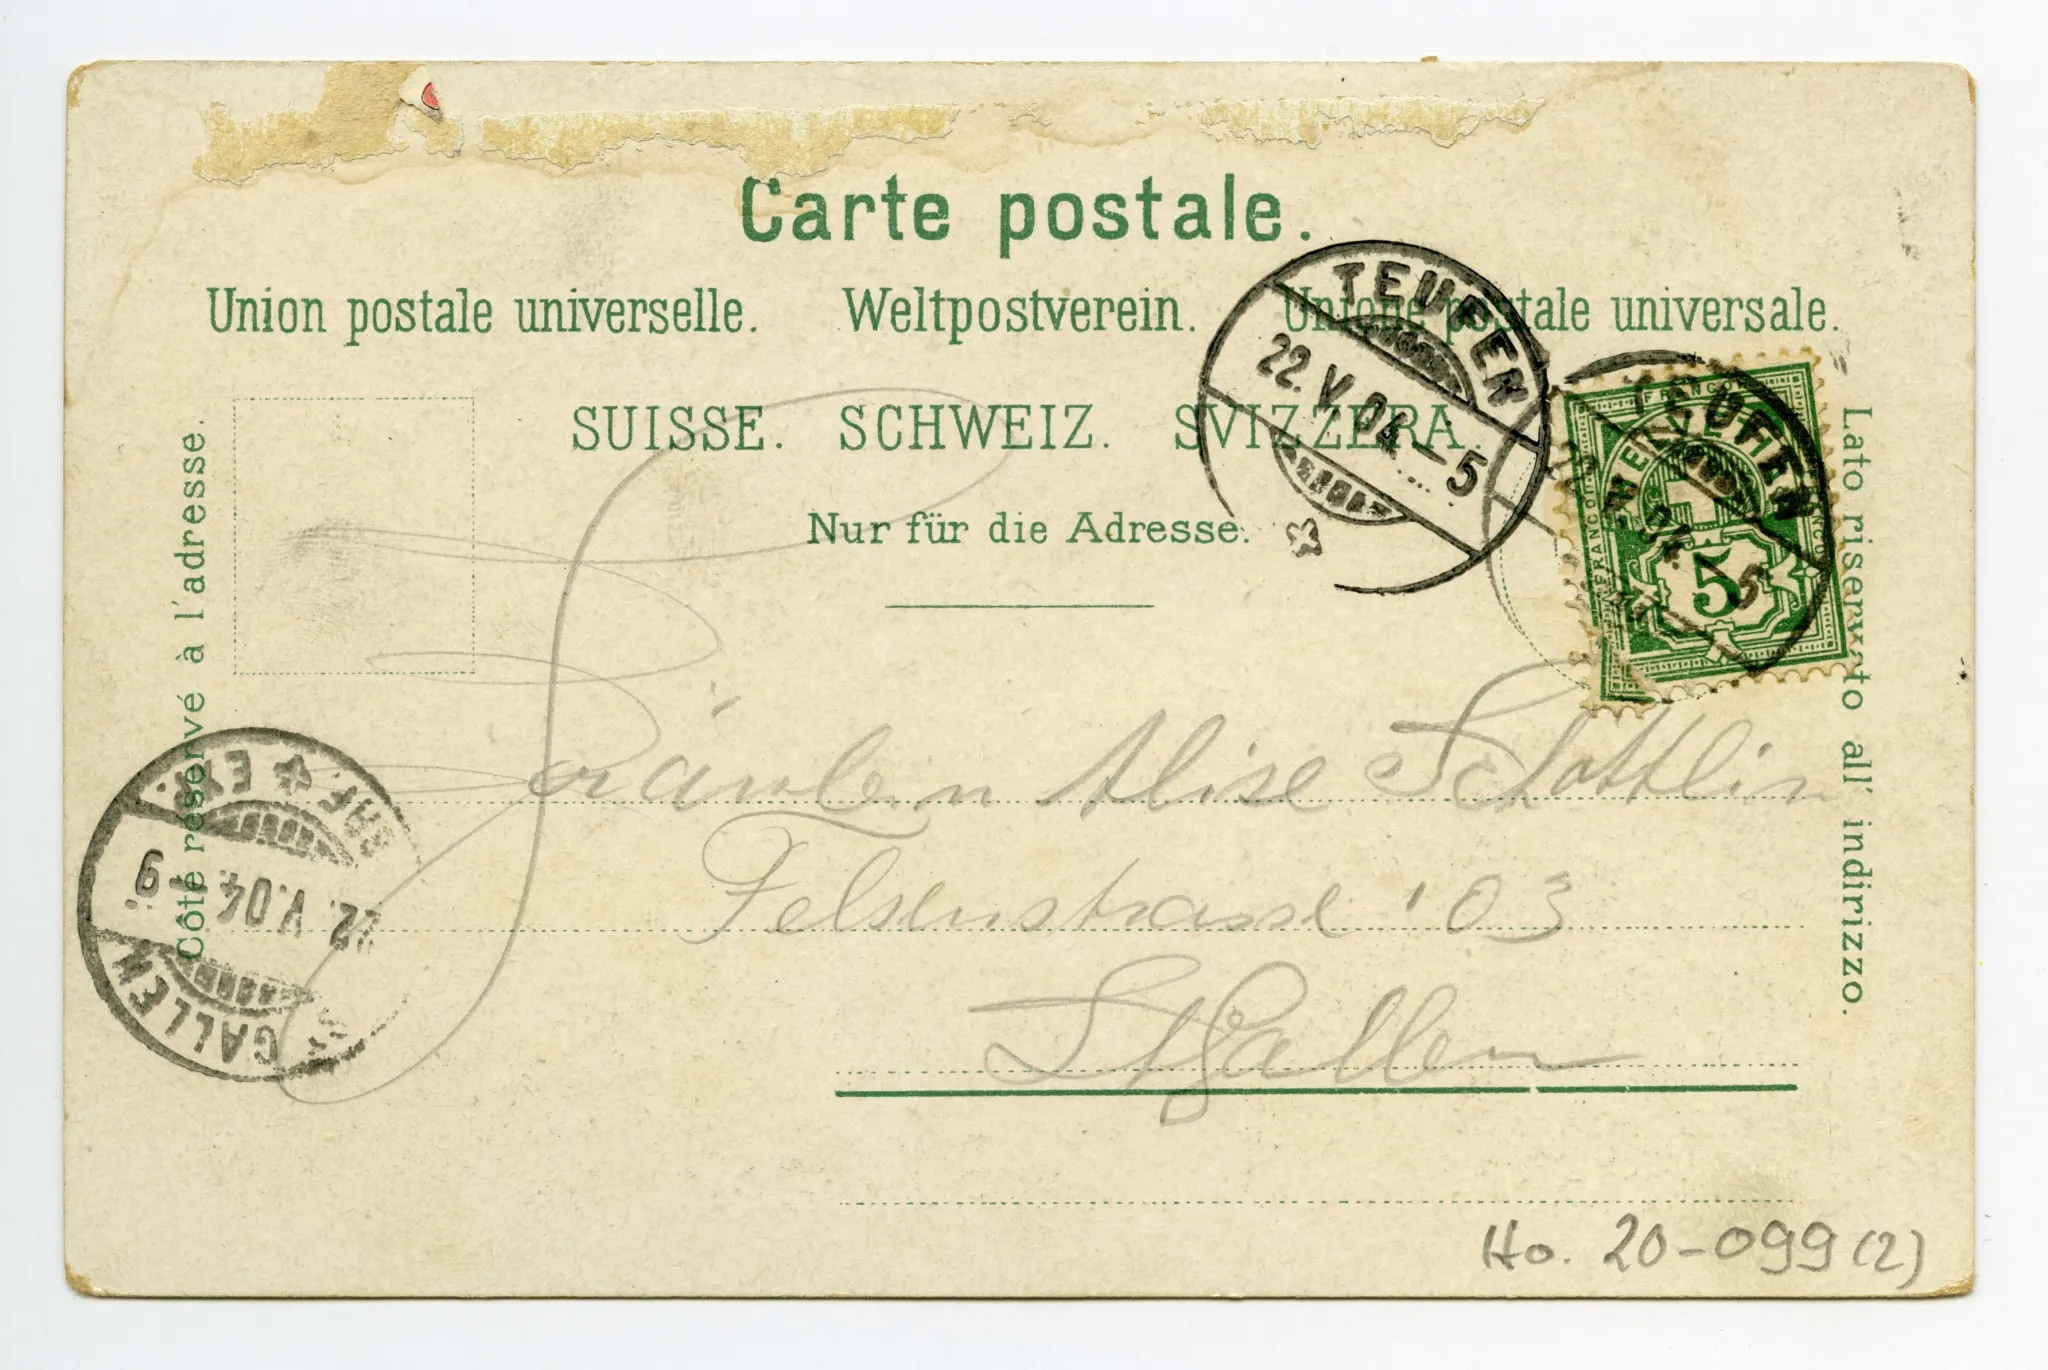 Carte postale.
Union postale universelle. Weltpostverein. Unione postale universale.
SUISSE. SCHWEIZ. SVIZZERA.
Nur für die Adresse.
Côté réservé à l'adresse.
Lato riservato all' indirizzo.
TEUFEN
22.V.04.–5
TEUFEN
FRANCO
HELVETIA
5
Fräulein Alise Schottlin
Felsenstrasse 103
St Gallen
ST. GALLEN
22. V.04.–9
BRF. EXP.
Ho. 20-099 (2)